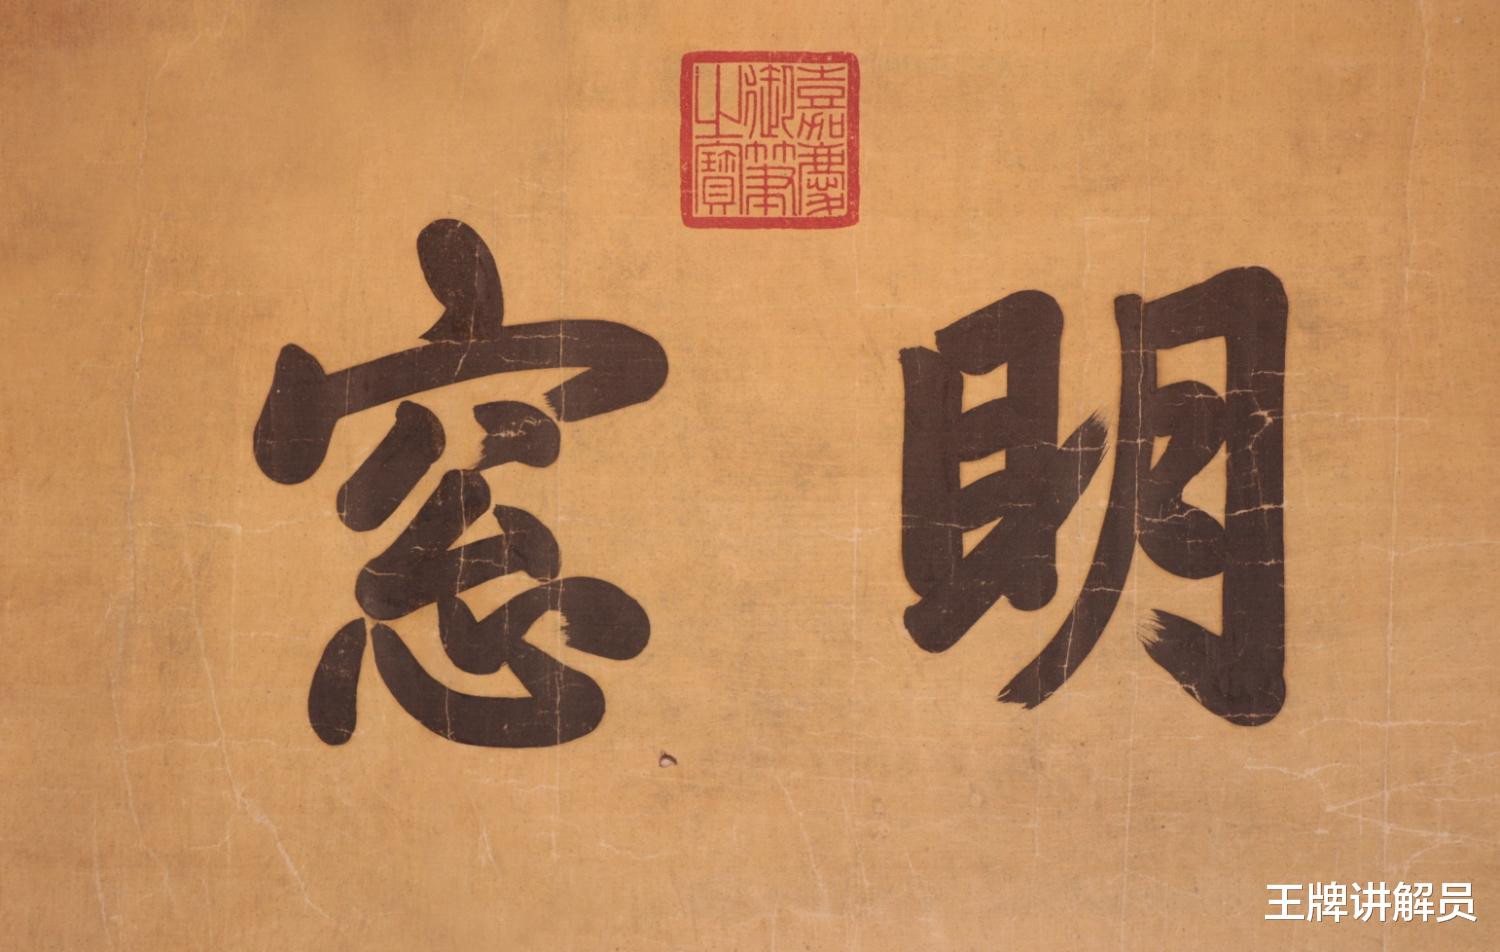 嘉慶御筆之寶
明窓
王牌讲解员